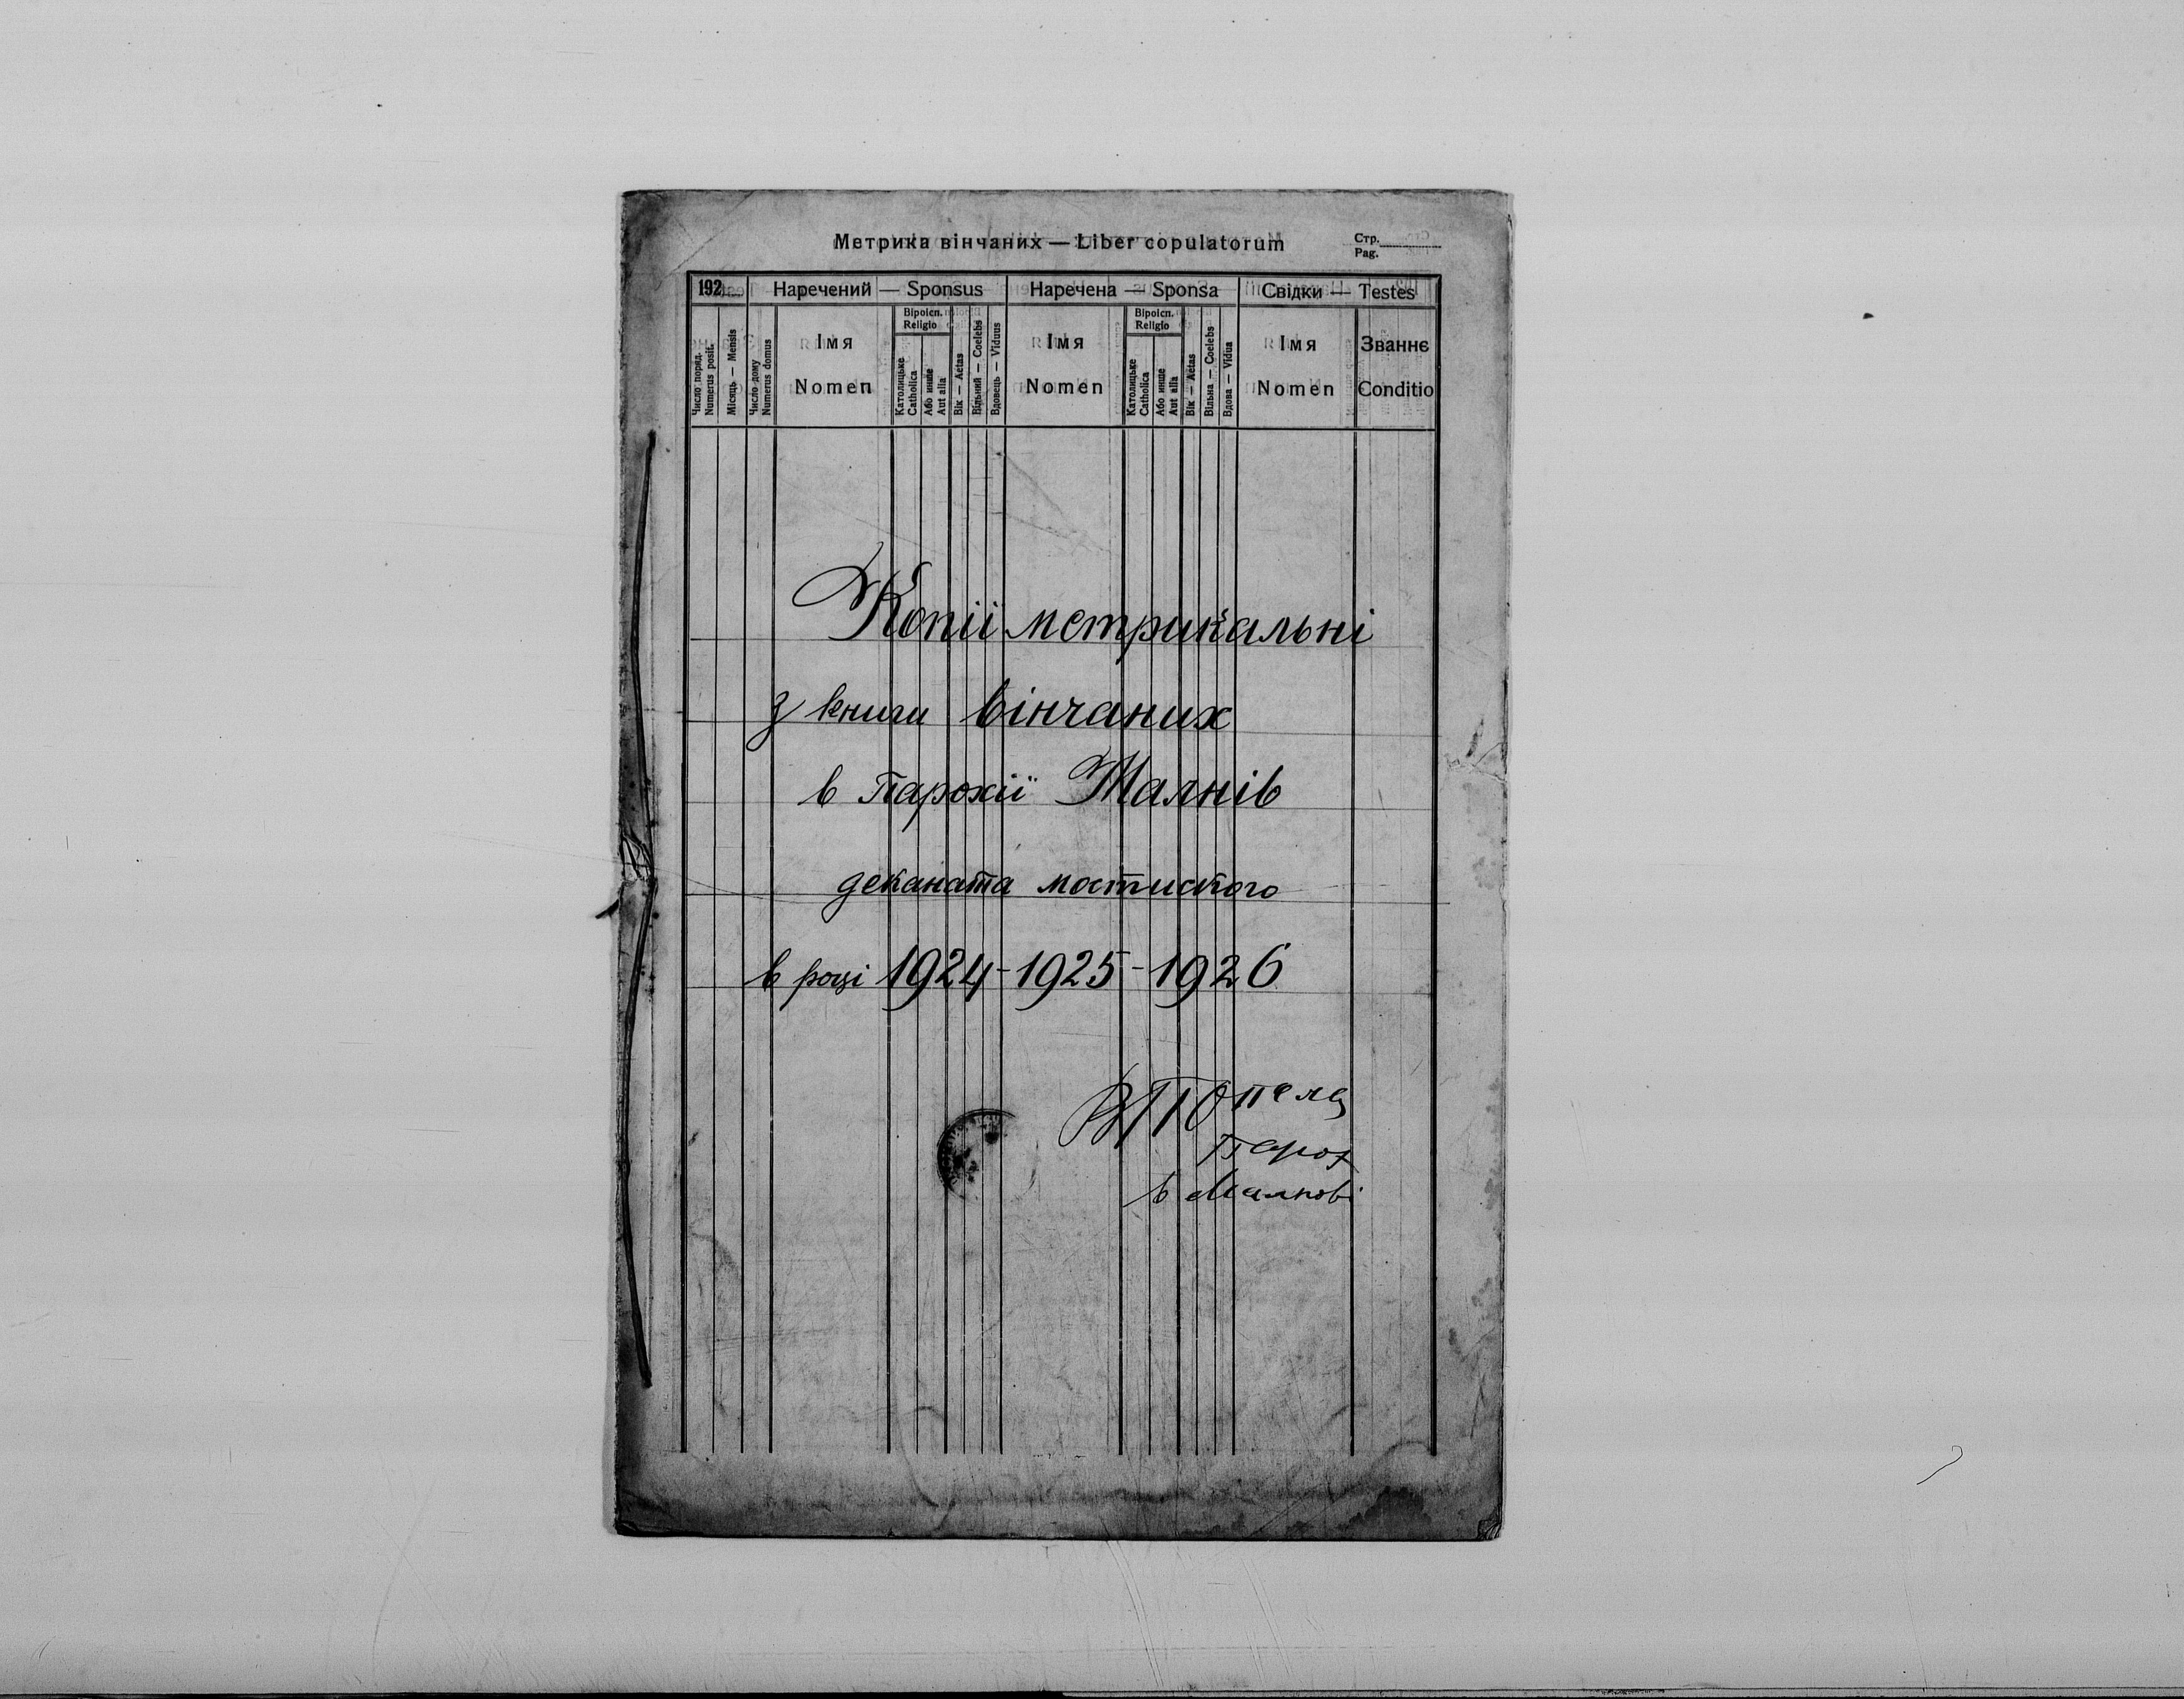 Метрика вінчаних — Liber copulatorum
Стр.
Pag.
192
Наречений — Sponsus
Наречена — Sponsa
Свідки — Testes
Число поряд.
Numerus posit.
Місяць — Mensis
Число дому
Numerus domus
Імя
Nomen
Віроісп.
Religio
Католицьке
Catholica
Або инше
Aut alia
Вік — Aetas
Вільний — Coelebs
Вдовець — Viduus
Імя
Nomen
Віроісп.
Religio
Католицьке
Catholica
Або инше
Aut alia
Вік — Aetas
Вільна — Coelebs
Вдова — Vidua
Імя
Nomen
Званнє
Conditio
Копії метрикальні
з книги вінчаних
в Парохії Малнів
деканата мостиского
в році 1924-1925-1926
Парох
в Малнові